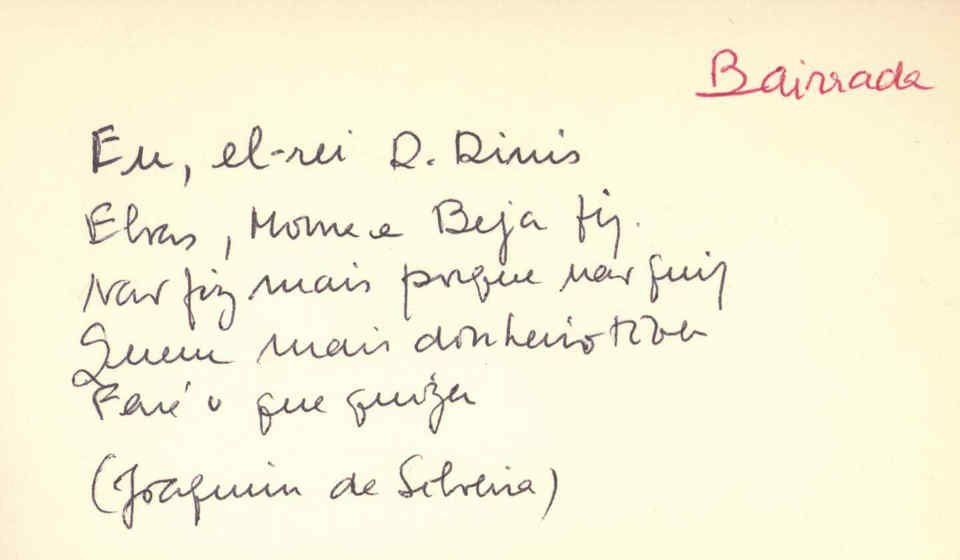 Bairrada
Eu, el-rei D. Dinis
Elvas, Moura e Beja fiz.
Nar fiz mais porque nar quiz
Quem mais dinheiro tiver
Fará o que quizer
(Joaquim de Silveira)